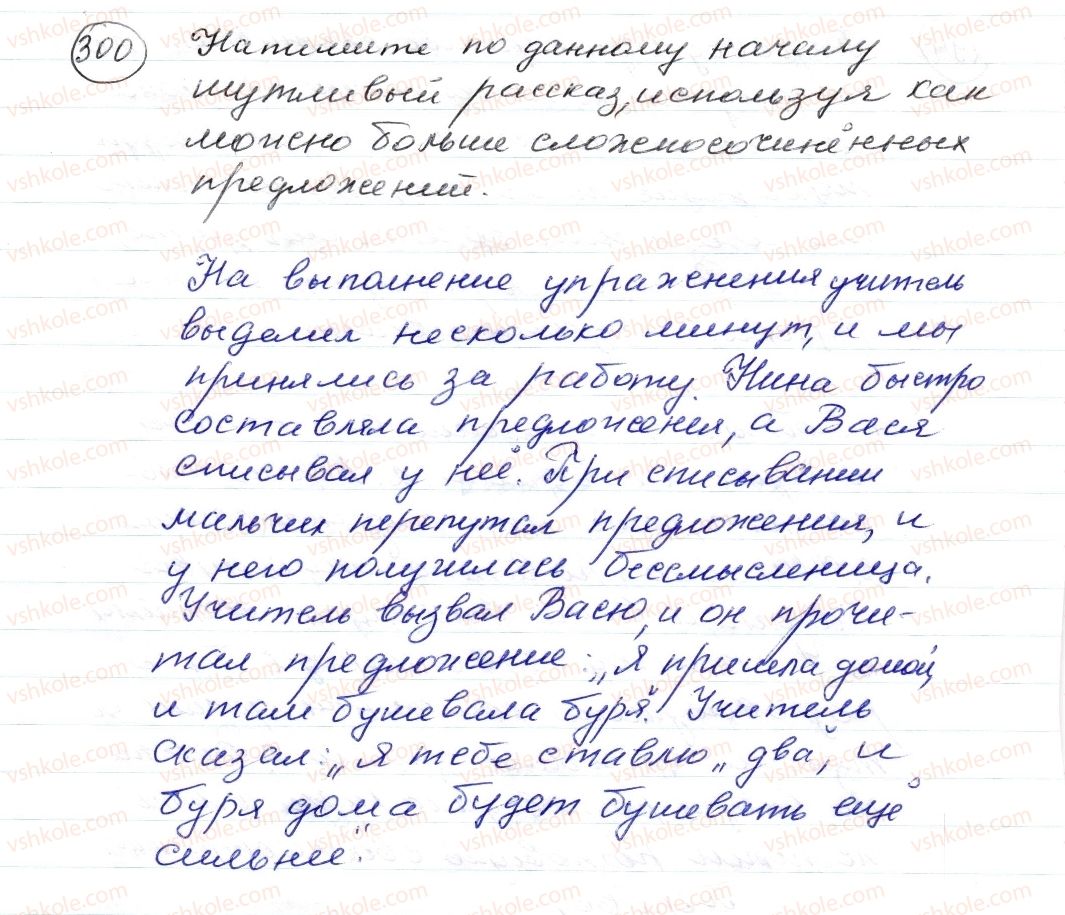 300 Напишите по данному началу
шутливый рассказ, используя как
можно больше сложносочинённых
предложений.
На выполнение упражнения учитель
выделил несколько минут, и мы
принялись за работу. Нина быстро
составляла предложения, а Вася
списывал у неё. При списывании
мальчик перепутал предложения, и
у него получилась бессмысленица.
Учитель вызвал Васю, и он прочи-
тал предложение: „Я пришла домой,
и там бушевала буря". Учитель
сказал: „Я тебе ставлю „два", и
буря дома будет бушевать ещё
сильне".